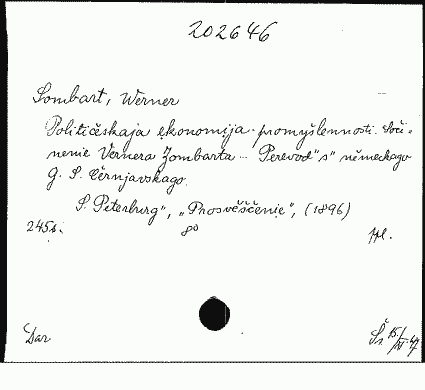 202646
Sombart, Werner
Političeskaja ekonomija promyšlennosti. Soči-
nenie Vernera Zombarta ... Perevod" s" německago
G. S. Černjavskago.
S. Peterburg", "Prosvěščenie", (1896)
245 s. 8°
Dar